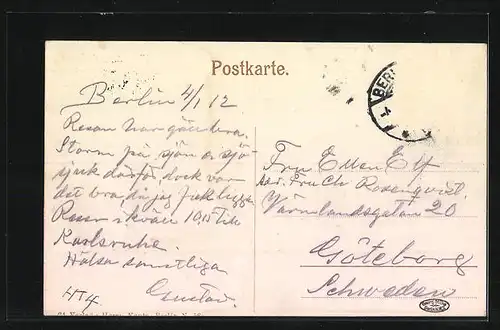 Postkarte.
Berlin 4/1 12
Resan har gått bra.
Storm på sjön o. sjö-
sjuk därför dock var
det bra, då jag fick ligga
Reser i kväll 10,15 till
Karlsruhe.
Hälsa samtliga
Gustav.
HT4
BER
Fru Ellen Elf
adr. Fru Ch. Rosenqvist.
Värmlandsgatan 20
Göteborg
Schweden